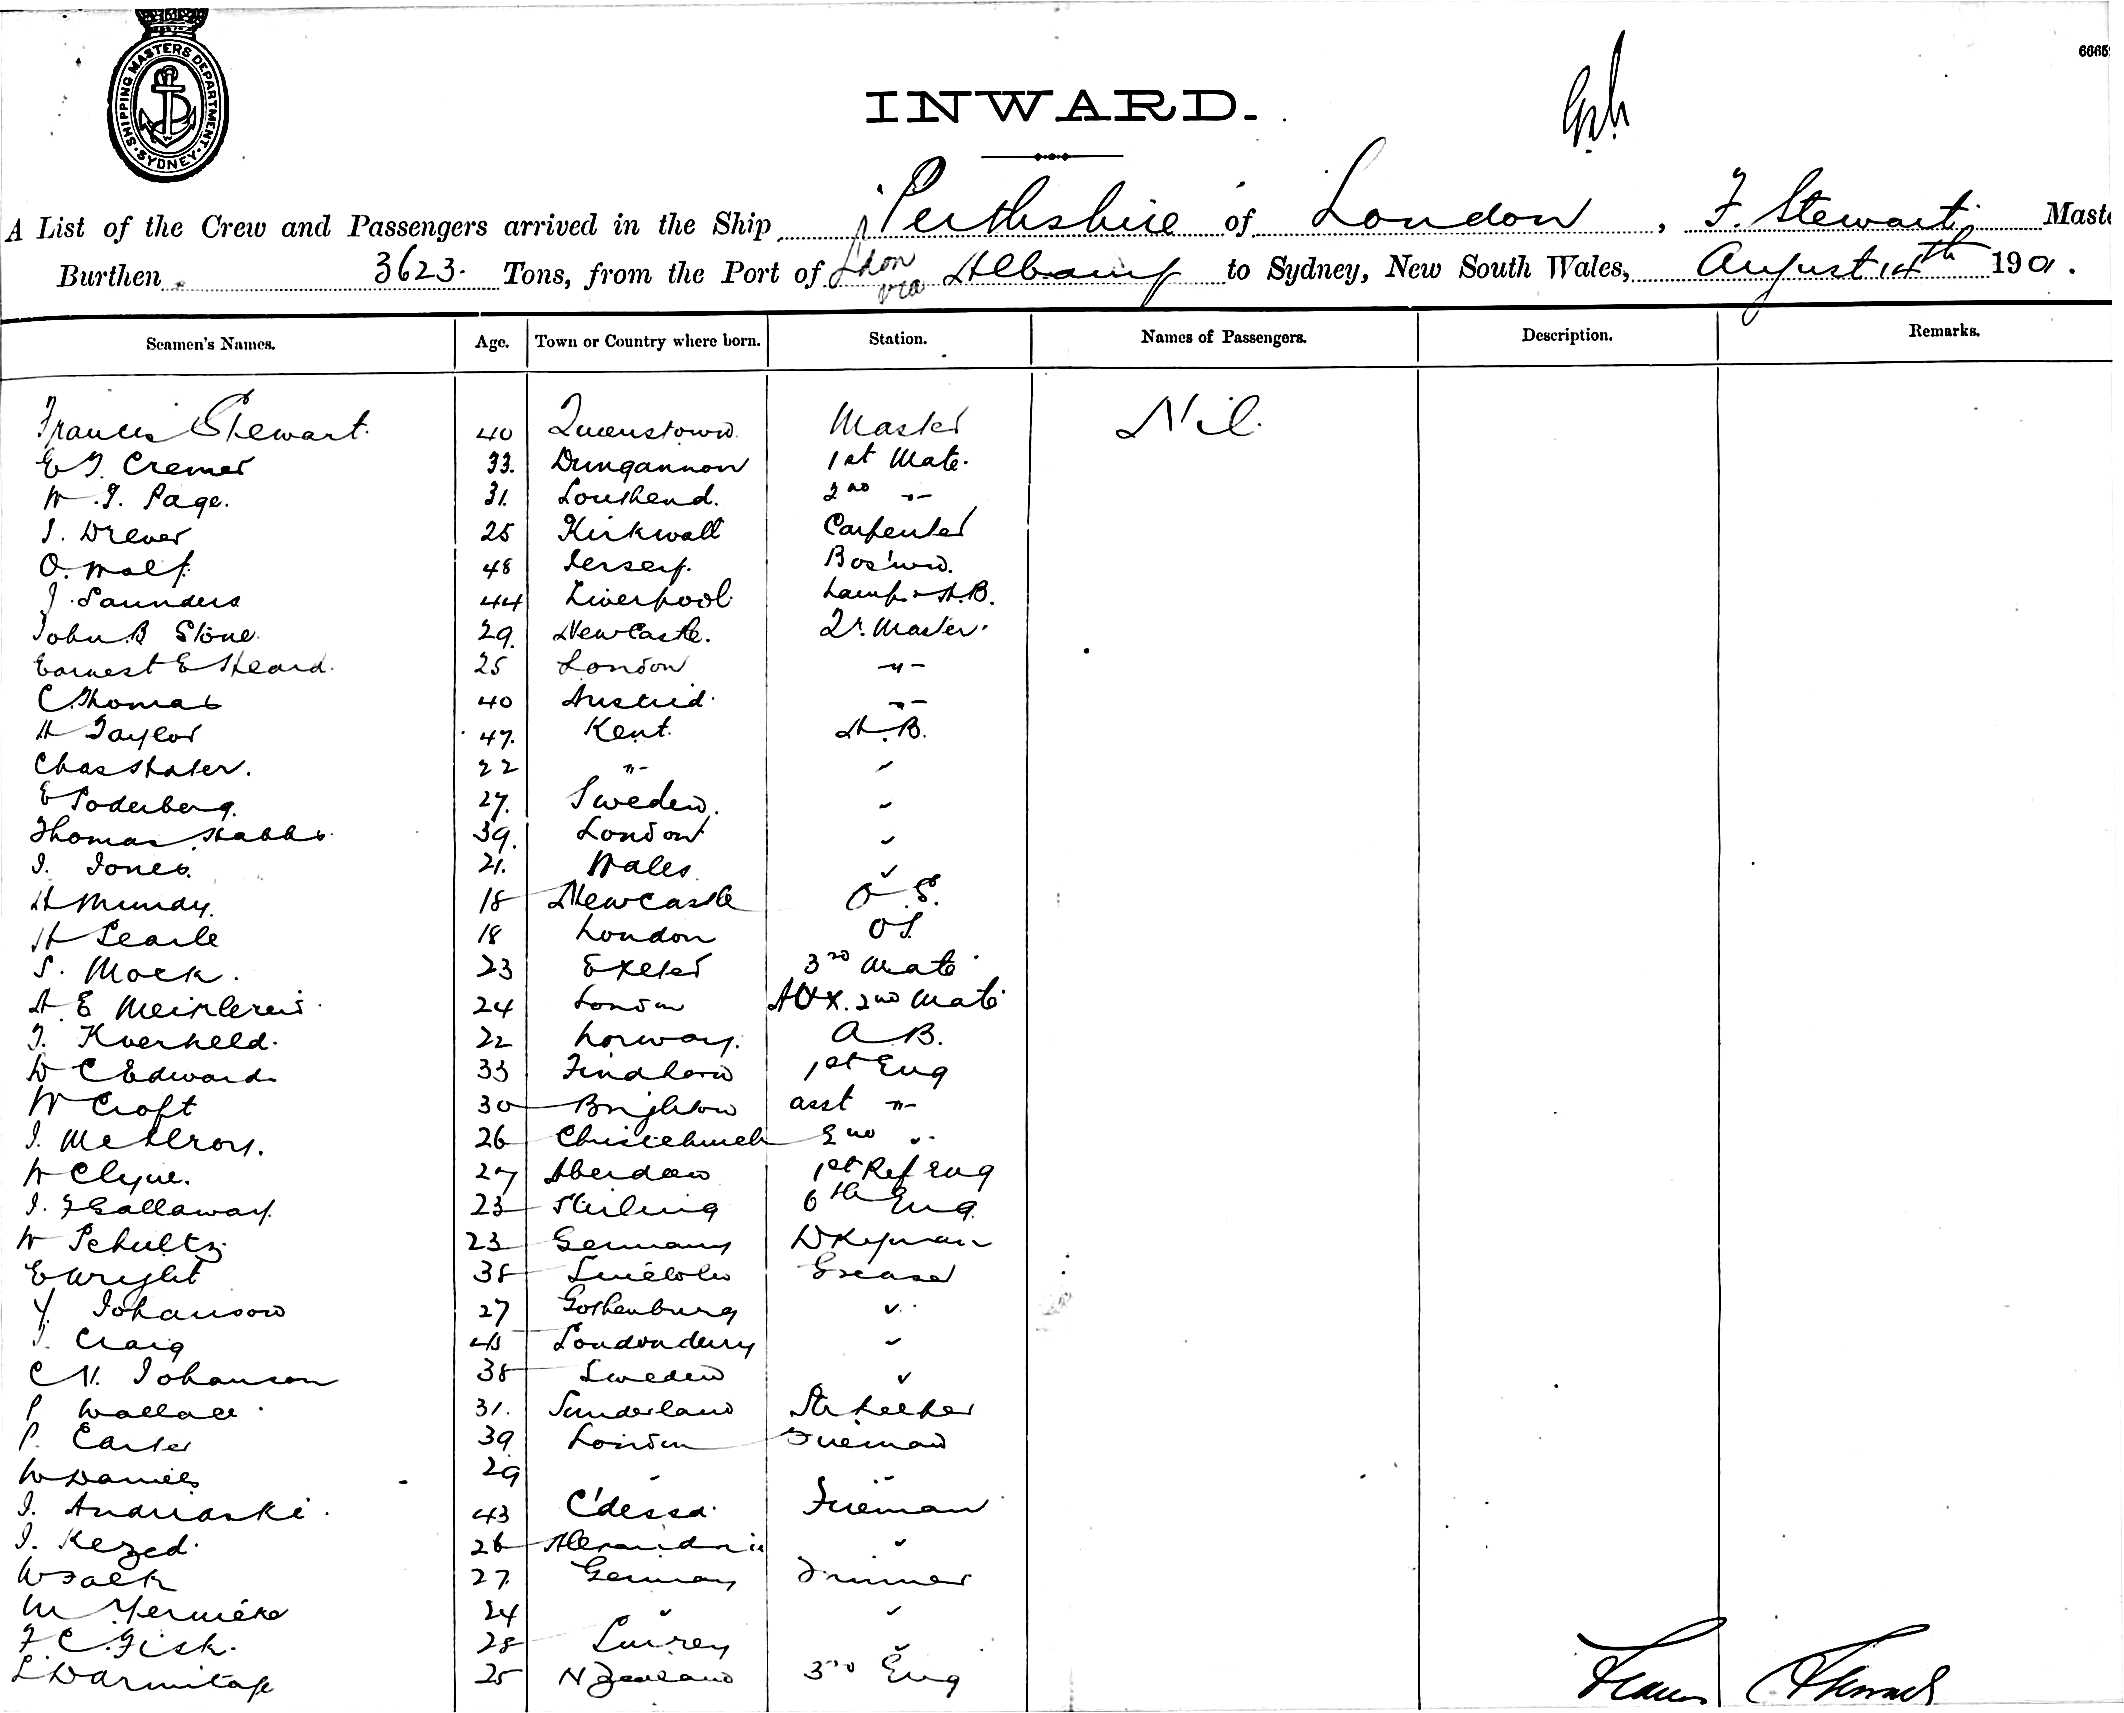 SHIPPING MASTERS DEPARTMENT SYDNEY
6665
INWARD.
A List of the Crew and Passengers arrived in the Ship Perthshire of London, F. Stewart Maste
Burthen 3623. Tons, from the Port of via Albany to Sydney, New South Wales, August 14th 1901.
Seamen's Names. Age. Town or Country where born. Station. Names of Passengers. Description. Remarks.
Francis Stewart. 40 Queenstown Master Nil.
E Cremer 33. Dungannon 1st Mate.
W. Page. 31. Southend. 2nd -"-
J. Drever 25 Kirkwall Carpenter
O. Wolf. 48 Jersey. Bos'wn.
J. Saunders 44 Liverpool Lamps A.B.
John B Stone 29. NewCastle. Qr. Master.
Earnest E Heard. 25 London -"-
C Thomas 40 -"-
H Taylor 47. Kent. A.B.
Chas Slater. 22 -"- "
E Soderberg. 27. Sweden. "
Thomas Stabbs 39. London "
J. Jones. 21. Wales "
H Munday. 18 NewCastle O.S.
H Searle 18 London OS.
S. Mock. 23 Exeter 3rd Mate
A E 24 London AUX. 2nd Mate
T. Kverneld. 22 Norway. A.B.
D C Edwards 33 Findhorn 1st Eng
W Croft 30 Brighton asst -"-
J. McIlroy. 26 Christchurch 2nd "
W Clyne. 27 Aberdeen 1st Ref Eng
J. F Gallaway. 23 Stirling 6th Eng.
W Schultz 23 Germany Dkyman
E Wright 38 Lincoln Greaser
Y. Johanson 27 Gothenburg "
J. Craig 45 Londonderry "
C N. Johanson 38 Sweden "
P Wallace 31. Sunderland Stkeeper
P. Carter 39 London Fireman
W Daniels 29 " "
J. Andriaski. 43 O'dessa. Fireman
J. Kezed. 26 Alexandria "
W Falk 27 Germany Trimmer
M 24 " "
F. C. Fisk. 28 Surrey "
L D Armitage 25 N Zealand 3rd Eng
Francis Stewart